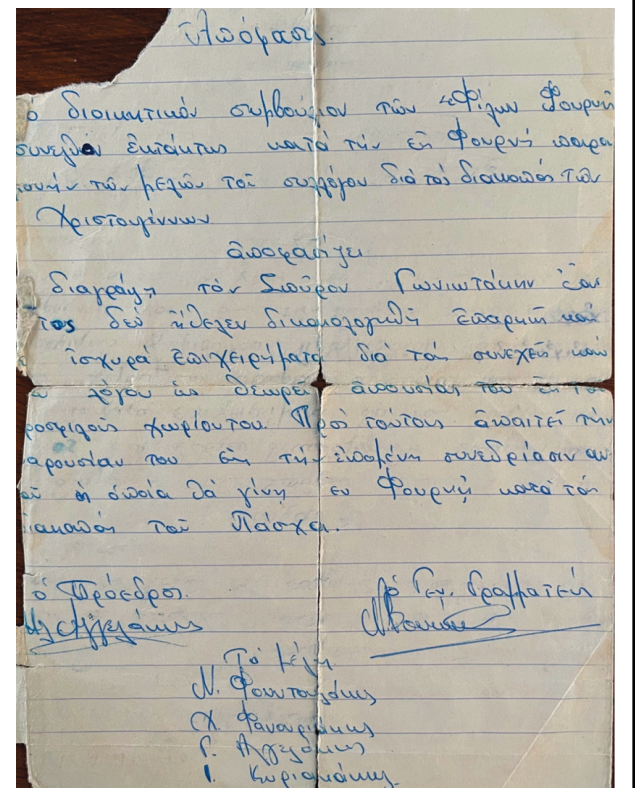 Ἀπόφασις.
διοικητικόν συμβούλιον τῶν "Φίλων Φουρνῆ
ἐκτάκτως κατά τήν ἐν Φουρνῇ παρα
μονήν τῶν μελῶν τοῦ συλλόγου διά τάς διακοπάς τῶν
Χριστουγέννων
ἀποφασίζει
διαγράψῃ τόν Σπῦρον Γωνιωτάκην ἐάν
δέν ἤθελεν δικαιολογηθῆ ἐπαρκῆ καί
ἰσχυρά ἐπιχειρήματα διά τάς συνεχεῖς καί
λόγου ὡς θεωρεῖ ἀπουσίας του ἐκ τοῦ
προσφιλοῦς χωρίου του. Πρός τούτοις ἀπαιτεῖ τήν
παρουσίαν του εἰς τήν ἑπομένη συνεδρίασιν αυ
ἡ ὁποία θά γίνῃ ἐν Φουρνῇ κατά τάς
διακοπάς τοῦ Πάσχα.
ὁ Πρόεδρος. ὁ Γεν. Γραμματεύς
Ἀγγελάκης
Τά μέλη
Ν. Φουνταλάκης
Χ. Φανουριάκης
Γ. Ἀγγελάκης
Ι. Κυριακάκης